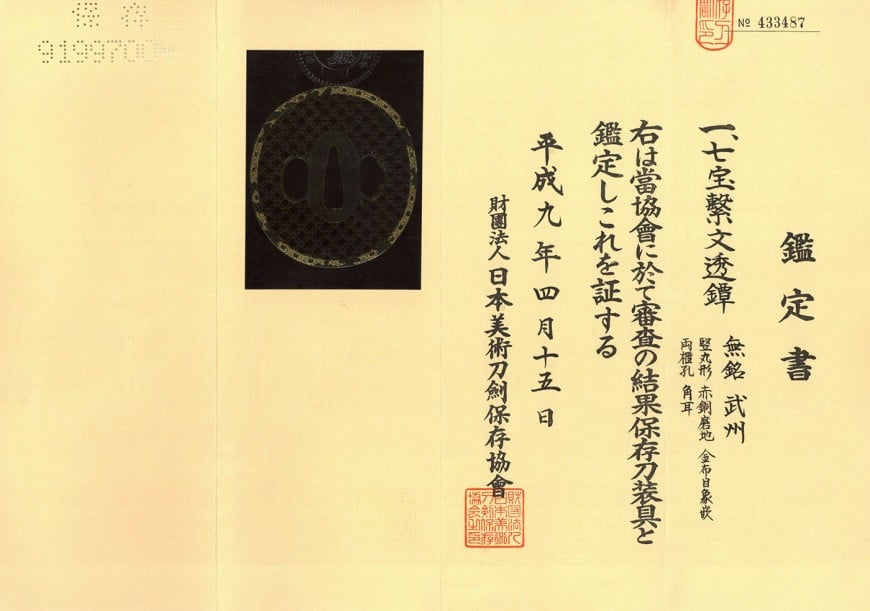 鑑定書
一、七宝繋文透鐔
無銘 武州
竪丸形 赤銅磨地 金布目象嵌
両櫃孔 角耳
右は當協會に於て審査の結果保存刀装具と
鑑定しこれを証する
平成九年四月十五日
財團法人日本美術刀剣保存協會
№ 433487
保存